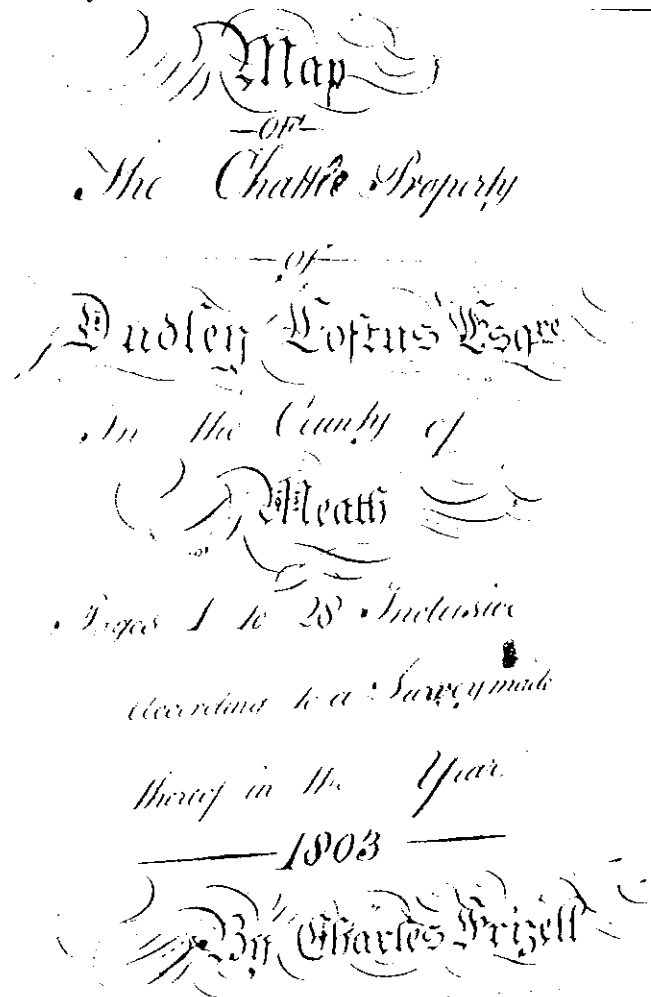 Map
OF
The Chattle Property
of
Dudley Loftus Esqre
In the County of
Meath
Pages 1 to 28 Inclusive
According to a Survey made
thereof in the Year
1803
By Charles Frizell